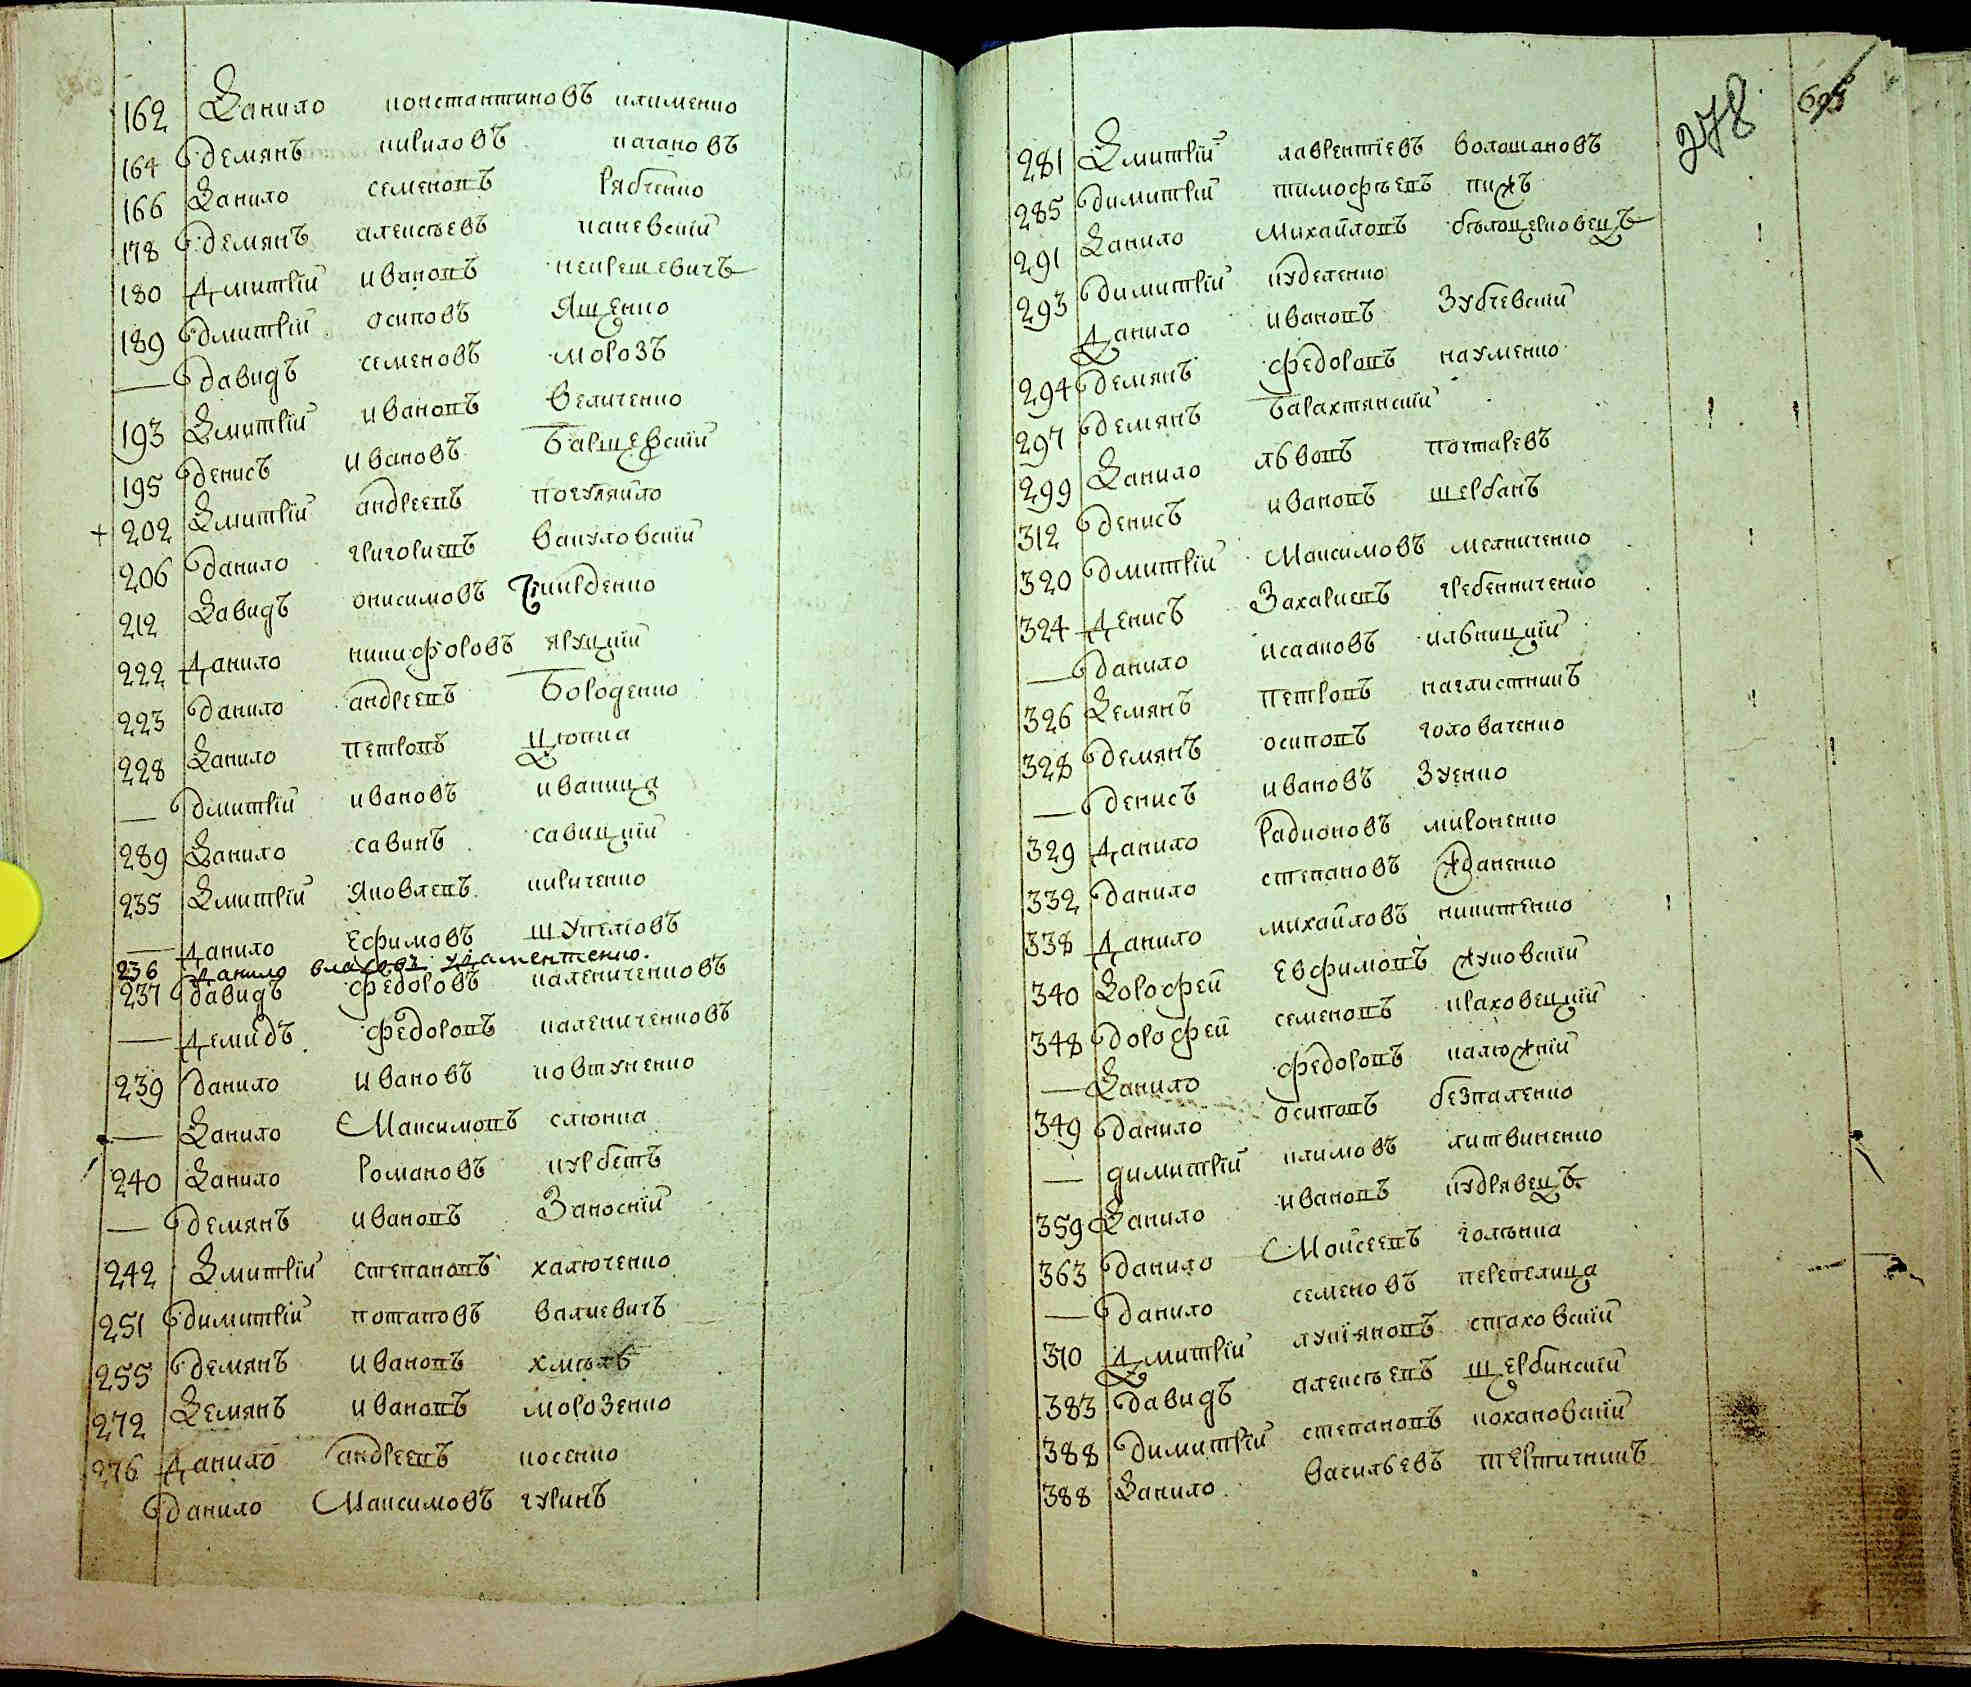 162 Данило константиновъ клименко
164 демянъ кириловъ качановъ
166 Данило семеновъ рябченко
178 демянъ алексѣевъ каневскїй
180 Дмитрїй ивановъ некрешевичъ
189 дмитрїй осиповъ Ященко
— давидъ семеновъ морозъ
193 Дмитрїй ивановъ величенко
195 денисъ ивановъ Барщевскїй
+ 202 Дмитрїй андреевъ погуляйло
206 данило григориевъ вакуловскїй
212 Давидъ онисимовъ
222 Данило никифоровъ яруцкїй
223 данило андреевъ Бороденко
228 Данило петровъ Цюпка
— дмитрїй ивановъ иваница
289 Данило савинъ савицкїй
235 Дмитрїй Яковлевъ кириченко
— Данило Ефимовъ
236 Данило
237 давидъ федоровъ калениченковъ
— Демидъ федоровъ калениченковъ
239 данило ивановъ ковтуненко
— Данило Максимовъ слюпка
240 Данило романовъ курбетъ
— демянъ ивановъ Заноскїй
242 Дмитрїй степановъ халюченко
251 димитрїй потаповъ валкевичъ
255 демянъ ивановъ хмѣль
272 Демянъ ивановъ морозенко
276 Данило андреевъ косенко
данило Максимовъ гуринъ
278
281 Дмитрїй лаврентїевъ волошановъ
285 димитрїй тимофѣевъ пижъ
291 Данило Михайловъ бѣлоцерковецъ
293 димитрїй куделенко
Данило ивановъ Зубчевскїй
294 демянъ федоровъ науменко
297 демянъ Барахтянскїй
299 Данило львовъ почтаревъ
312 денисъ ивановъ щербанъ
320 дмитрїй Максимовъ мелниченко
324 Денисъ Захариевъ гребенниченко
— данило исааковъ илѣницкїй
326 Демянъ Петровъ наглистникъ
328 демянъ осиповъ головаченко
— денисъ ивановъ Зуенко
329 Данило радионовъ мироненко
332 данило степановъ жданенко
338 Данило михайловъ никитенко
340 Дорофей Евфимовъ жуковскїй
348 дорофей семеновъ краховецкїй
— Данило федоровъ калюжнїй
349 данило осиповъ безпаленко
— димитрїй климовъ литвиненко
359 Данило ивановъ кудрявецъ
363 данило Мойсеевъ
— данило семеновъ перепелица
310 Дмитрїй лукїяновъ стаховскїй
383 давидъ алексѣевъ щербинскїй
388 димитрїй степановъ кохановскїй
388 Данило васильевъ тертичникъ